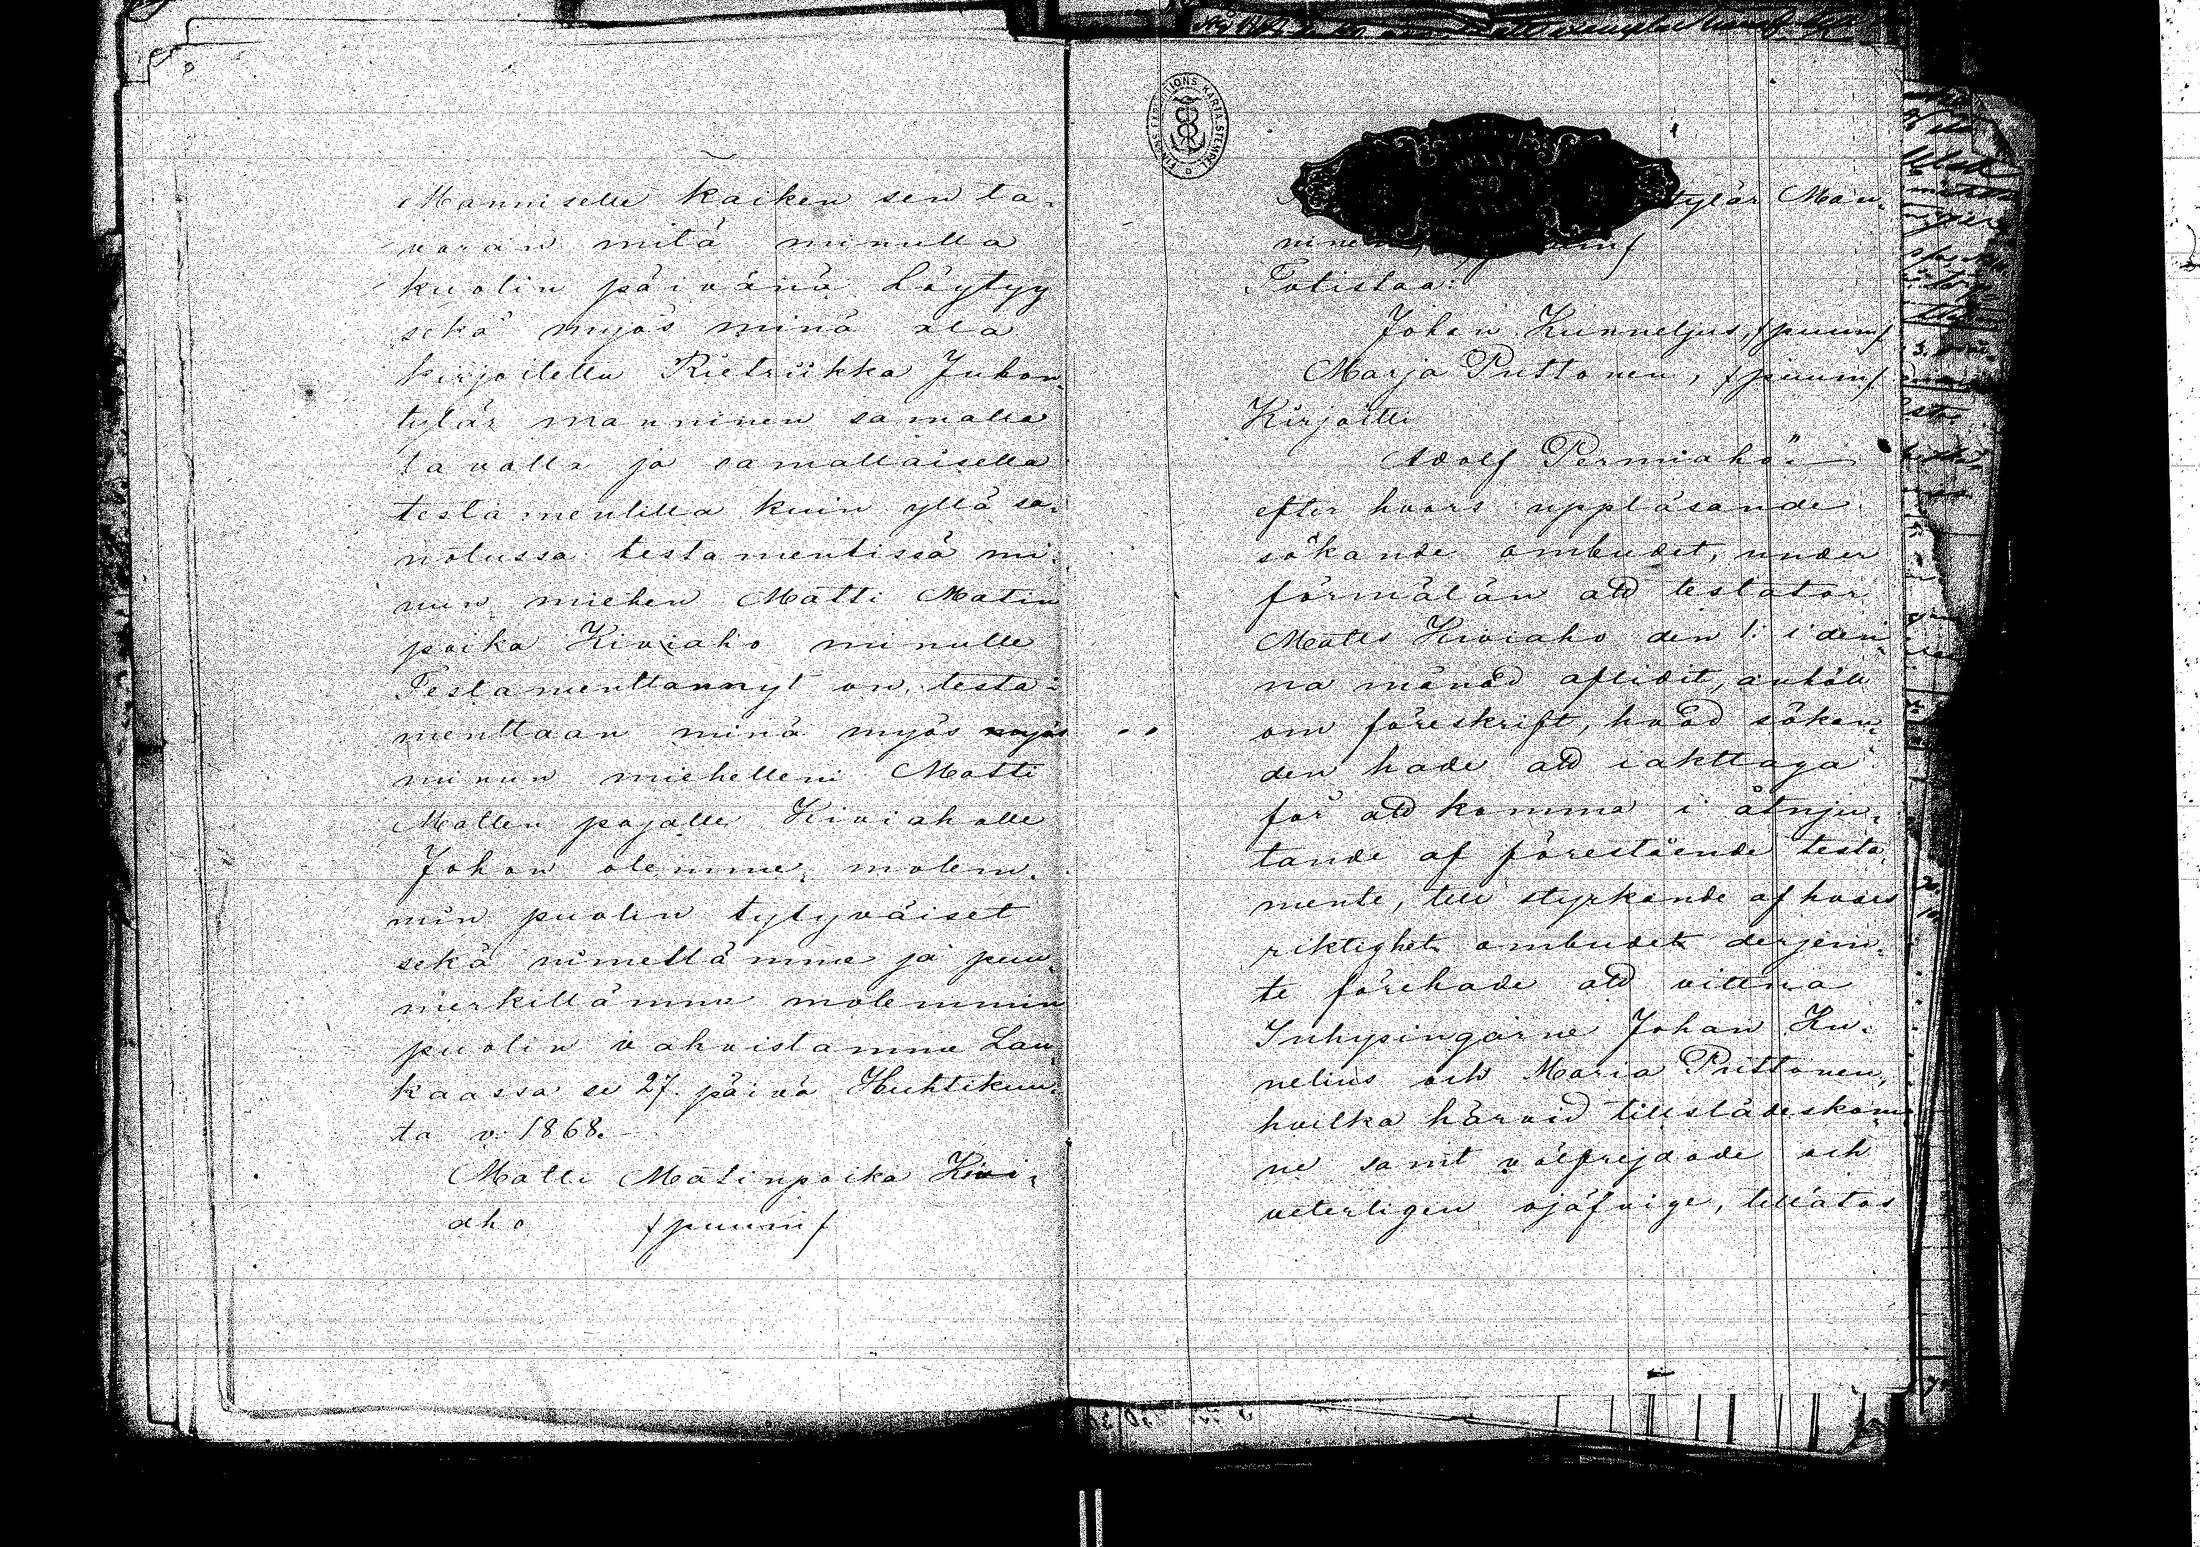 Manniselle kaiken sen ta-
varan mitä minulla
kuolin päivänä Löytyy
sekä myös minä ala
kirjoitettu Rietriikka Juhon
tytär manninen samalla
tavalla ja samallaisella
testamentilla kuin yllä sa-
notussa testamentissä mi-
nun miehen Matti Matin
poika Kiviaho minulle
Testamenttannyt on, testa-
menttaan minä myös myös
minun miehelleni Matti
Matten pojalle Kiviaholle
Johon olemme molem-
min puolin tytyväiset
sekä nimellämme ja puu-
merkillämme molemmin
puolin vahvistamme Lau-
kaassa se 27. päivä Huhtikuu-
ta v. 1868.
Matti Matinpoika Kivi-
aho /puum/
tytär Man-
ninen,
Totistaa:
Johan Kunneljus, /puum/
Marja Puttonen, /puum/
Kirjoitti
Adolf Permiahö"
efter hvars uppläsande
sökande ombudet, under
förmälan att testator
Matts Kiviaho den 1: i den-
na månad aflidit, anhöll
om föreskrift, hvad söken-
den hade att iakttaga
för att komma i åtnju-
tande af förestående testa-
mente, till styrkande af hvars
riktighet ombudet derjem-
te förehade att vittna
Inhysingarne Johan Ku-
nelius och Maria Puttonen,
hvilka härvid tillstädeskom-
ne samt välfrejdade och
veterligen ojäfvige, tillätos